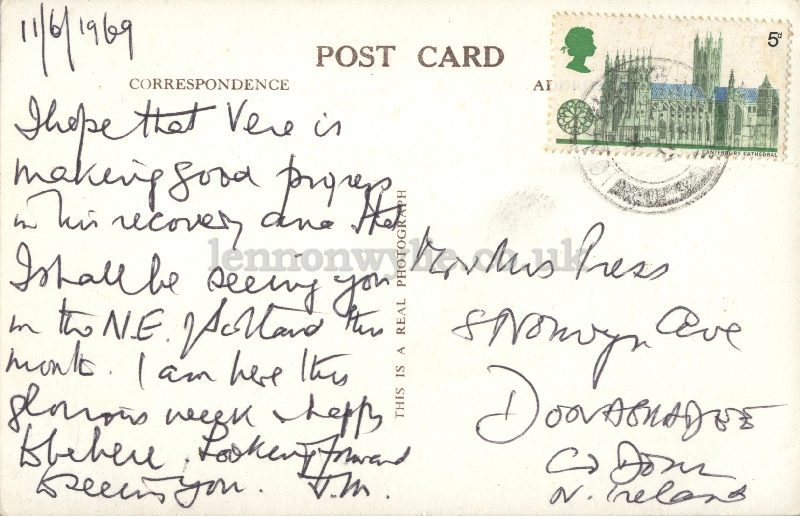 11/6/1969
POST CARD
CORRESPONDENCE
ADD
5d
CANTERBURY CATHEDRAL
I hope that Vere is
making good progress
in his recovery and that
I shall be seeing you
in the N.E. of Scotland this
month. I am here this
glorious week & happy
to be here. Looking forward
to seeing you. J.M.
THIS IS A REAL PHOTOGRAPH
lennonwylie.co.uk
Mr & Mrs Press
Ave
DONAGHADEE
Co Down
N. Ireland